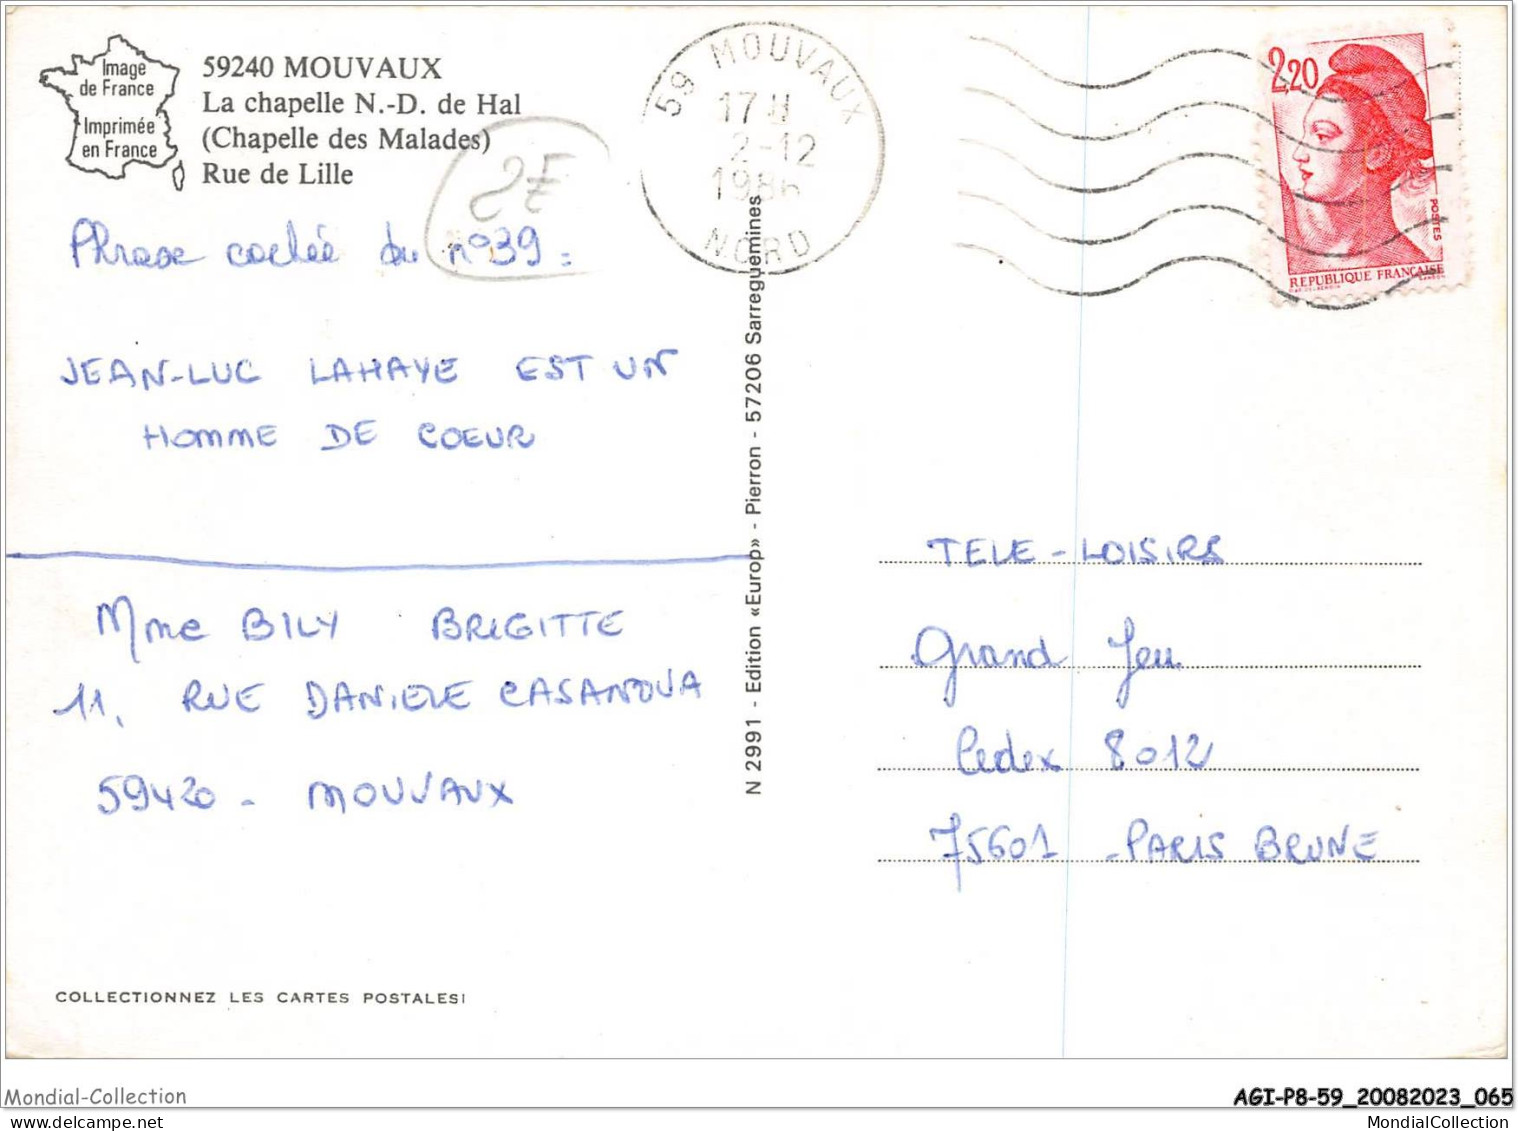 Image
de France
Imprimée
en France
59240 MOUVAUX
La chapelle N.-D. de Hal
(Chapelle des Malades)
Rue de Lille
2F
Phrase cachée du n°39 :
JEAN-LUC LAHAYE EST UN
HOMME DE COEUR
Mme BILY BRIGITTE
11, RUE DANIELE CASANOVA
59420 - MOUVAUX
COLLECTIONNEZ LES CARTES POSTALES!
N 2991 - Edition «Europ» - Pierron - 57206 Sarreguemines
59 MOUVAUX
17 H
2-12
1986
NORD
2,20
POSTES
REPUBLIQUE FRANÇAISE
TELE-LOISIRS
Grand Jeu
Cedex 8012
75601 - PARIS BRUNE
Mondial-Collection
AGI-P8-59_20082023_065
MondialCollection